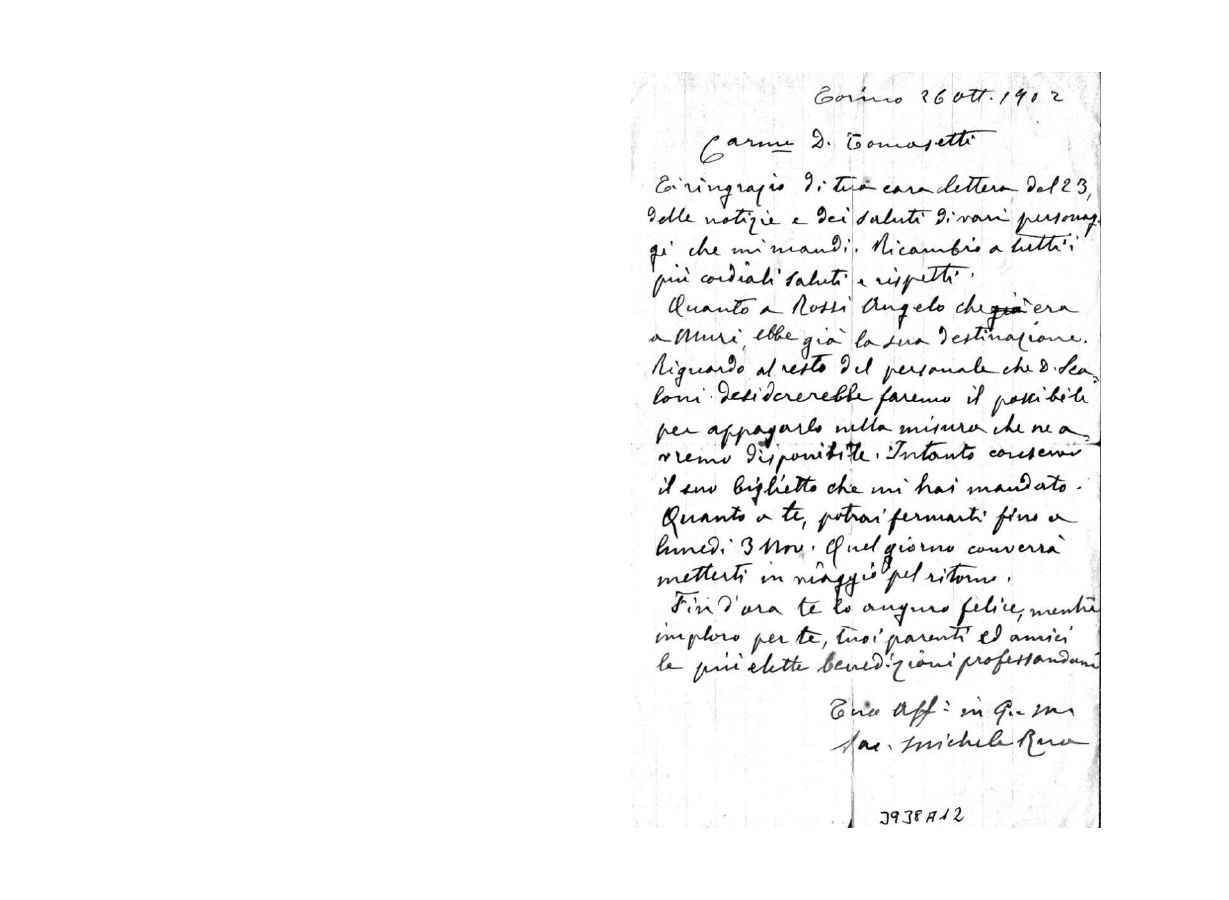 Torino 26 Ott. 1902
Carme D. Tomasetti
Ti ringrazio di tua cara lettera del 23,
delle notizie e dei saluti di vari personag-
gi che mi mandi. Ricambio a tutti i
più cordiali saluti e rispetti.
Quanto a Rossi Angelo che già era
a Muri, ebbe già la sua destinazione.
Riguardo al resto del personale che D. Sca-
loni desidererebbe faremo il possibile
per appagarlo nella misura che ne a-
vremo disponibile. Intanto conservo
il suo biglietto che mi hai mandato.
Quanto a te, potrai fermarti fino a
lunedì 3 Nov. Quel giorno converrà
metterti in viaggio pel ritorno.
Fin d'ora te lo auguro felice, mentre
imploro per te, tuoi parenti ed amici
le più elette benedizioni professandomi
Tuo Aff. in G. e M.
Sac. Michele Rua
J938A12